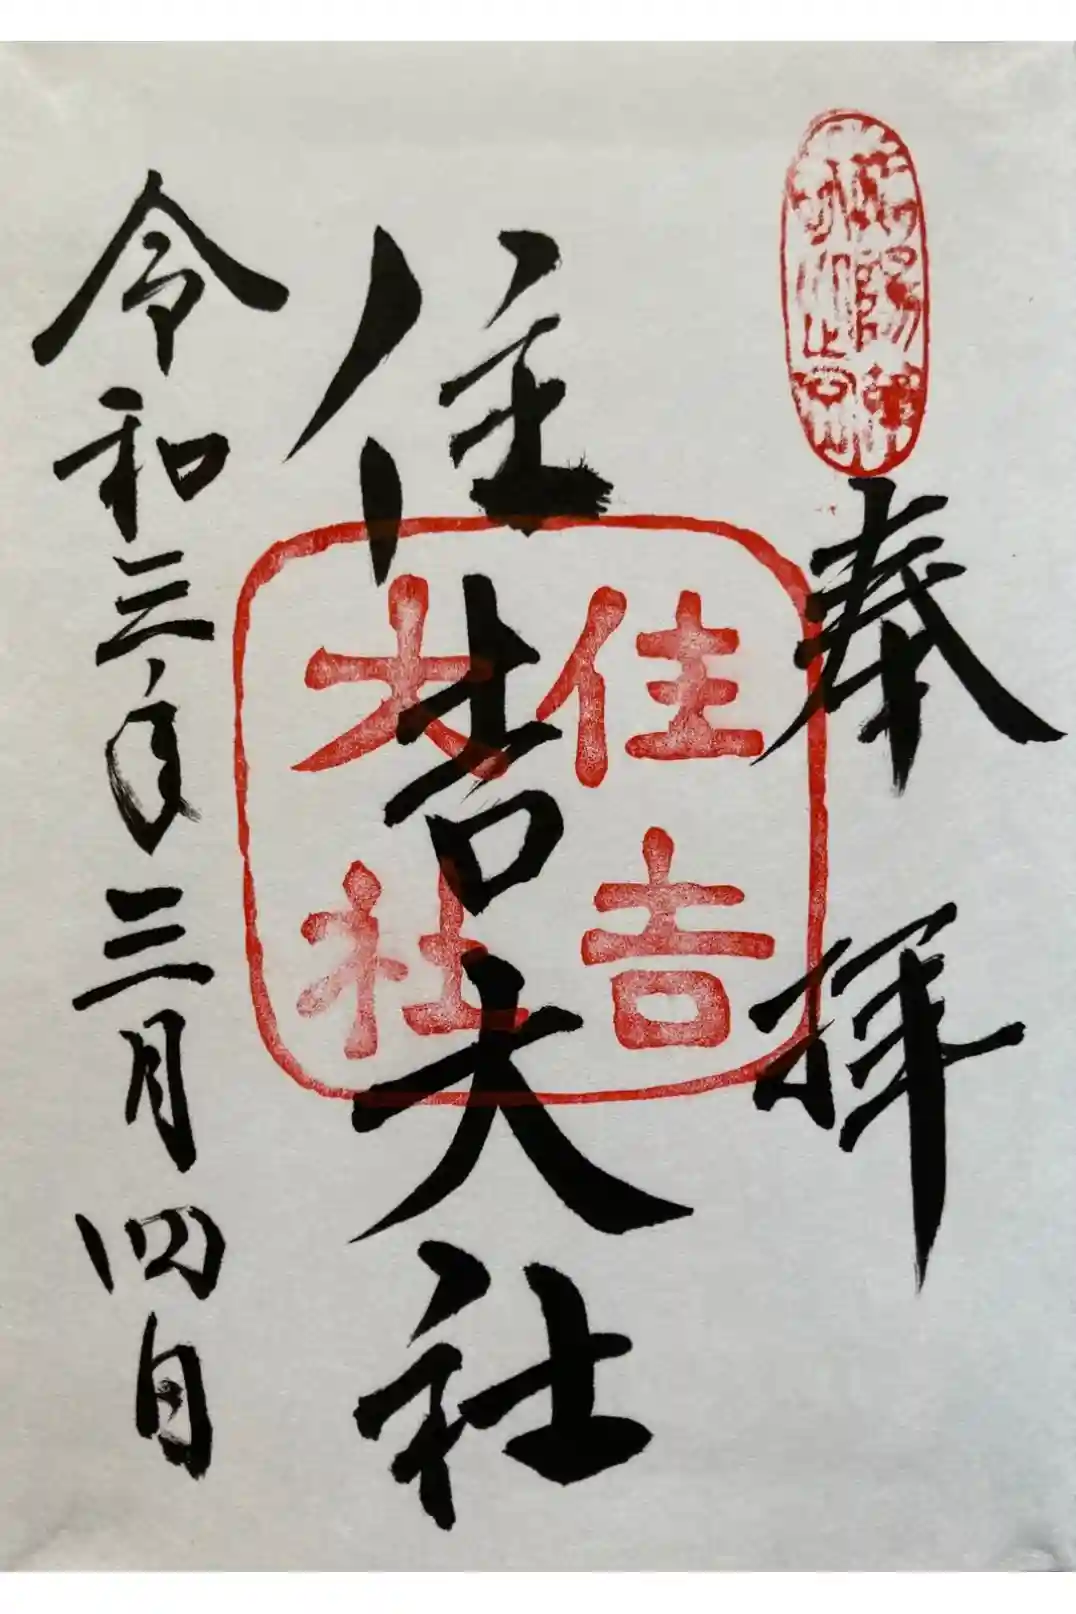 奉拝
住吉大社
住吉
大社
令和三年三月四日